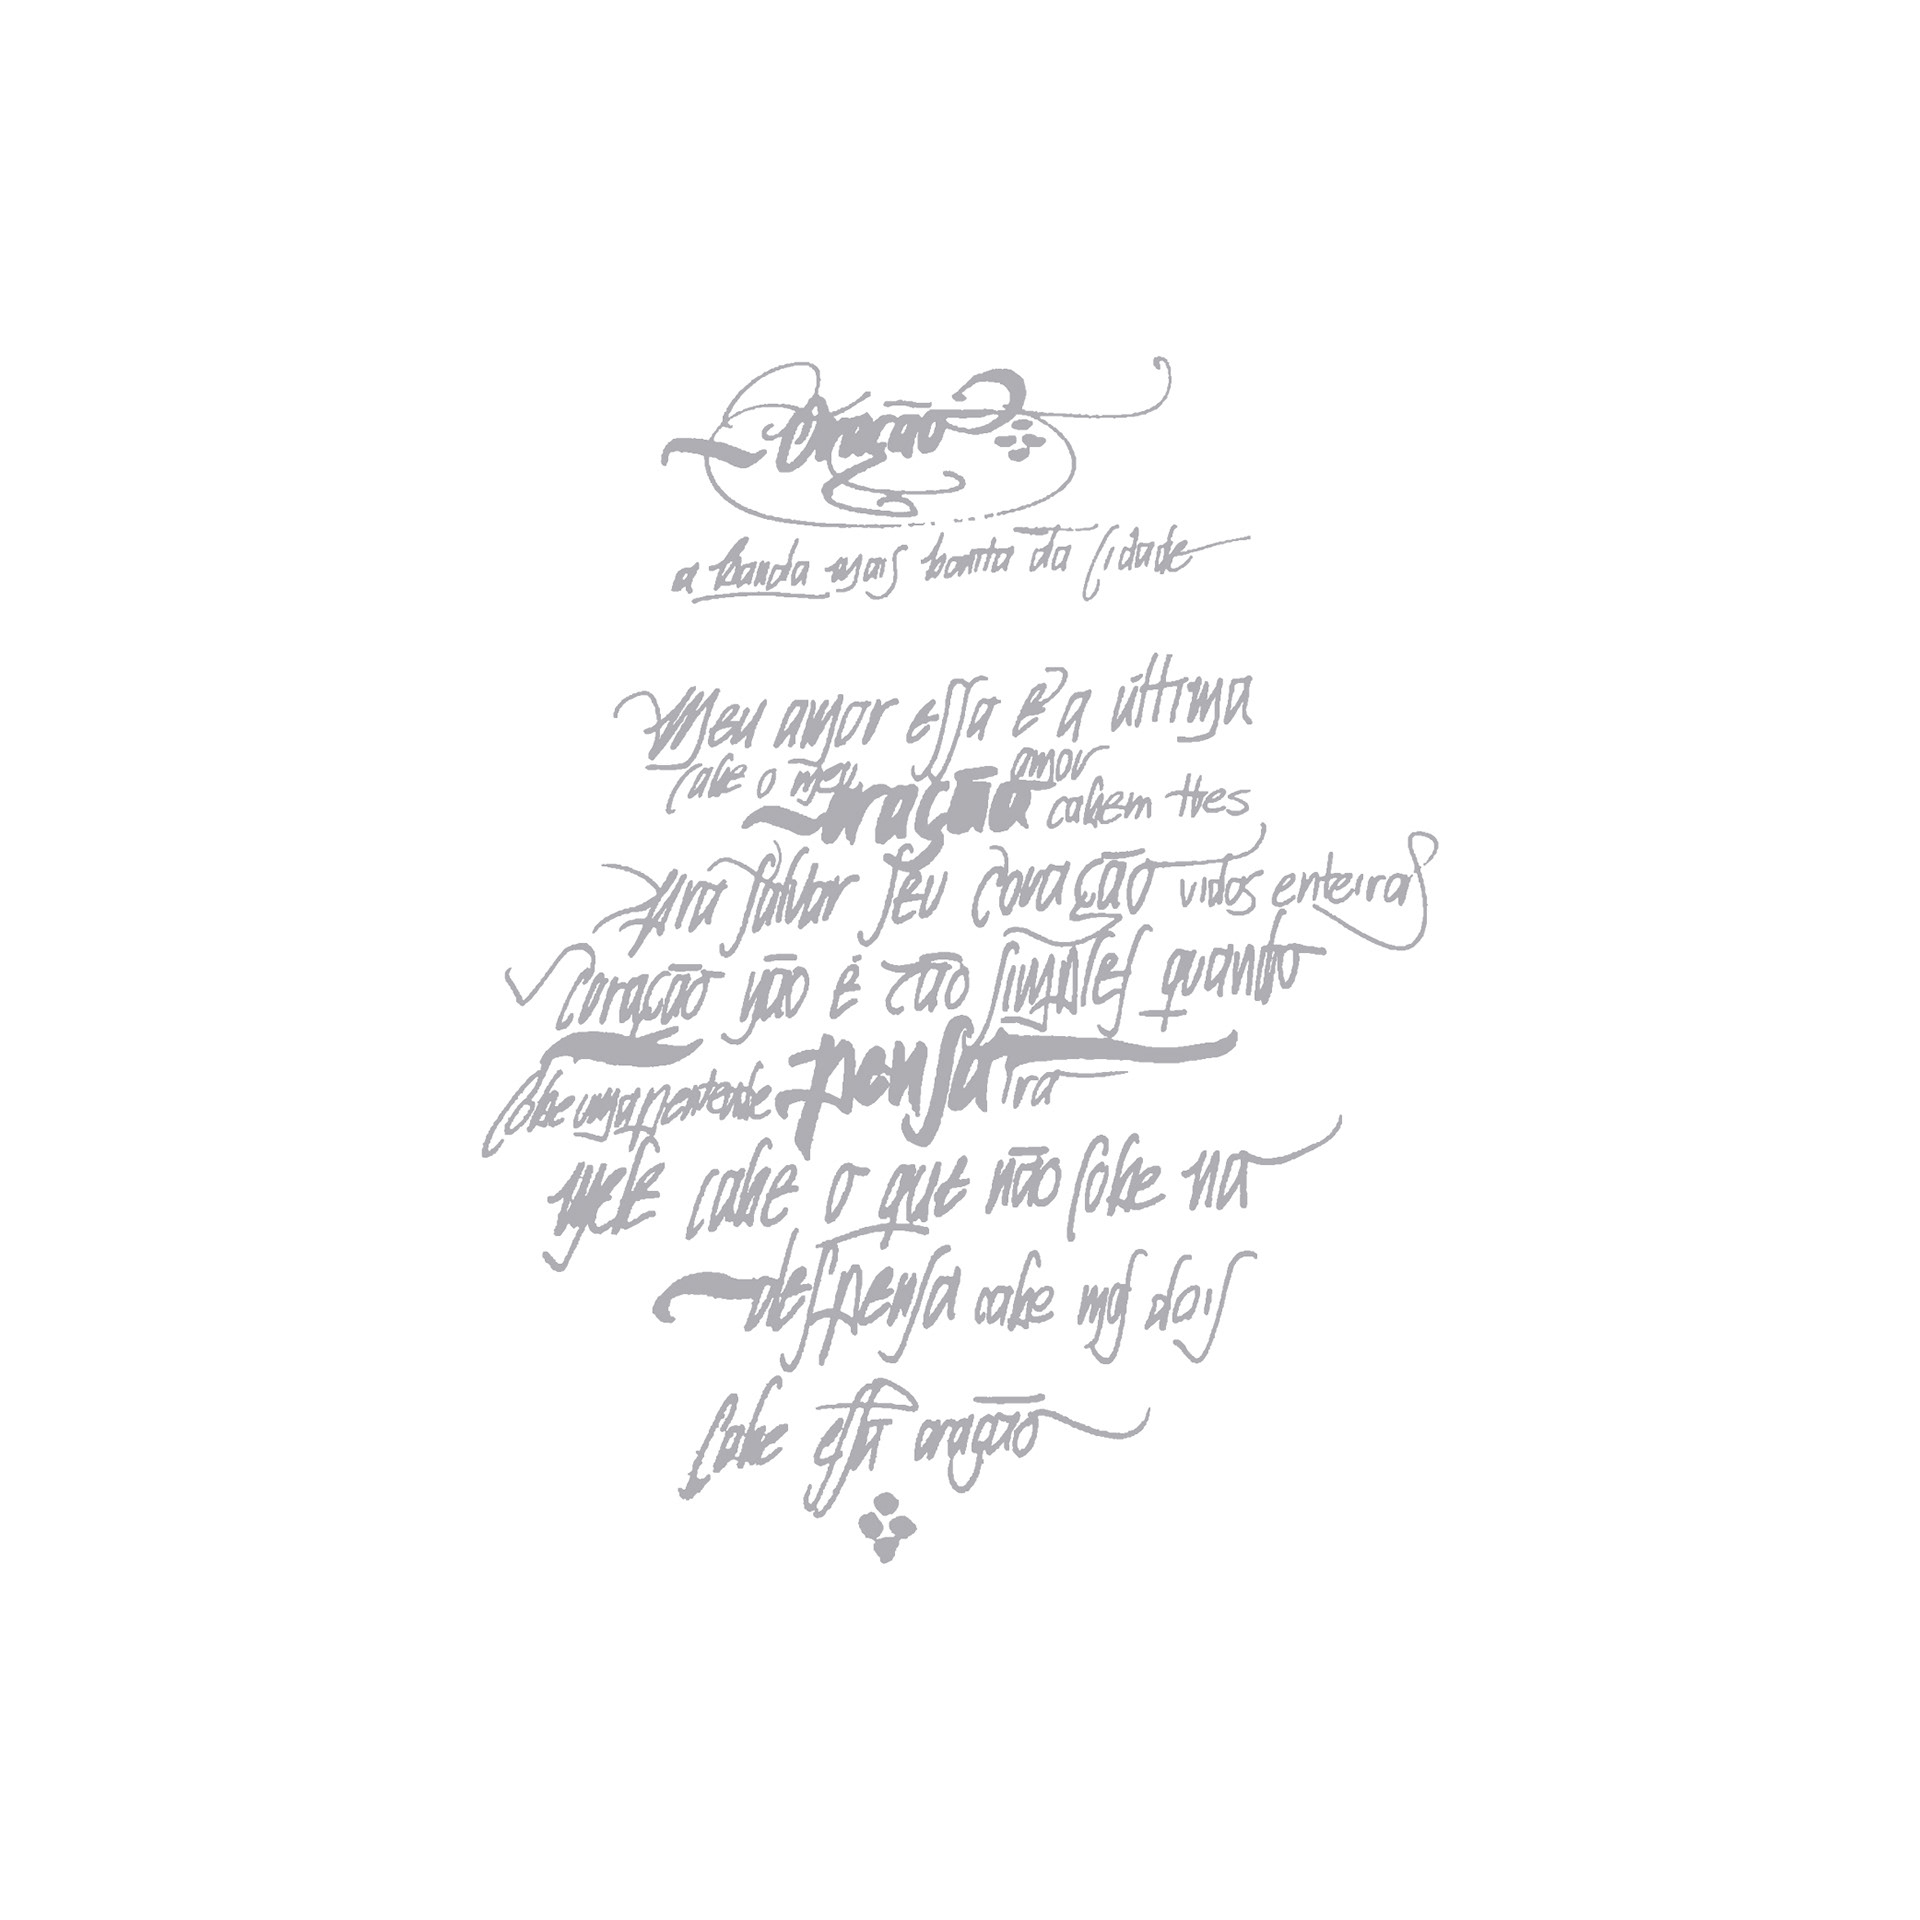 Oração
a banda mais bonita da cidade
Meu amor essa é a última
cabe o meu amor
oração cabem três
Pra salvar seu coração vidas inteiras
Coração não é tão simples quanto
cabe uma pensa
nele cabe o que não cabe na
despensa cabe nós dois
cabe